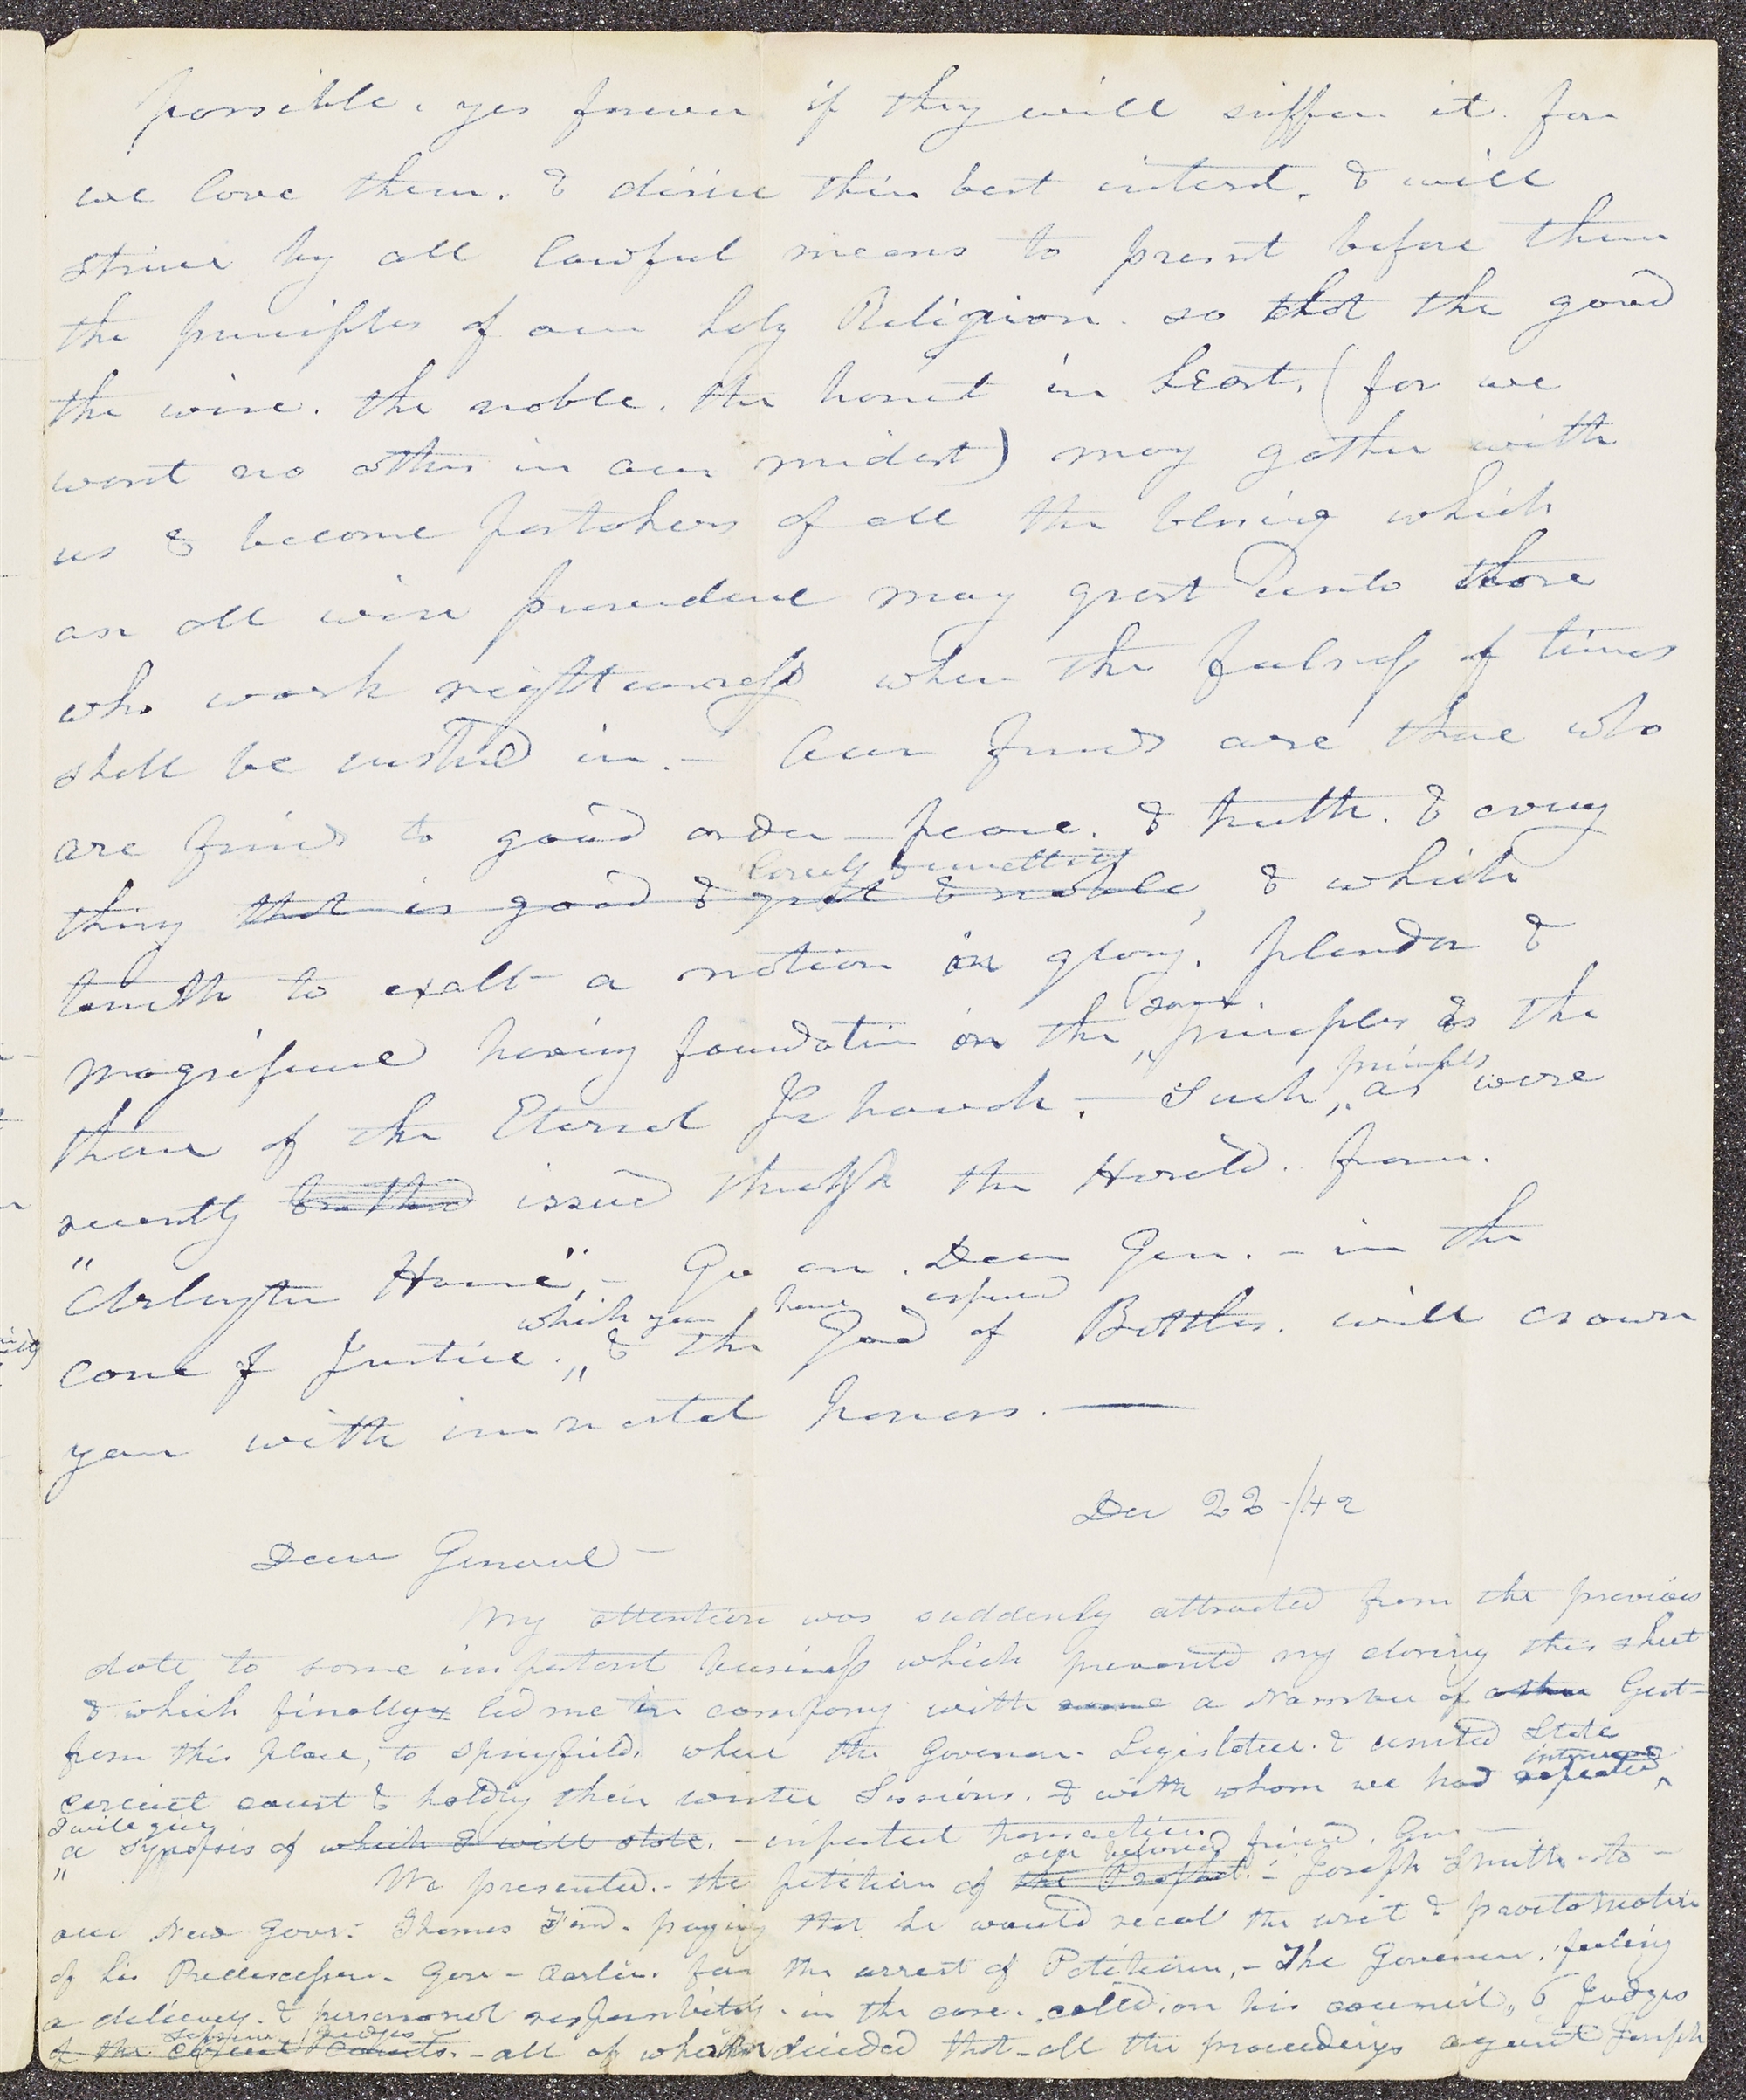 possible. yes forever if they will suffer it. for
we love them. & desire their best interest. & will
strive by all lawful means to present before them
the principles of our holy Religion. so that the good
the wise. the noble. the honest in heart. (for we
want no others in our midst) may gather with
us & become partakers of all the blessing which
an all wise providence may grant unto those
who work righteousness when the fulness of times
shall be ushered in. — Our friends are those who
are friends to good order — peace. & truth. & every
lovely
thing that is good & great & noble, & which
tendeth to exalt a nation in glory. splendor &
same.
magnificence having foundation on the principles as the
principles
those of the Eternal Jehovah. — Such, as were
recently issued through the Herald. from.
"Arlington House", — Go on. Dear Gen. — in the
which you have espoused
cause of Justice. & the God of Battles. will crown
you with immortal honors. —
Dec 22 /42
Dear General —
My attention was suddenly attracted from the previous
date to some important business which prevented my closing this sheet
& which finally led me in company with some a number of other Gent–
from this place, to Springfield. where the Governor. Legislature. & united State
interviews
circuit court & holding their winter Sessions. & with whom we had repeated
I will give
a synopsis of which I will state. — important transactions
our beloved friend. Gen —
We presented. — the petition of the Prophet. — Joseph Smith — to —
our New Gover. Thomas Ford. praying that he would recall the writ & proclamation
of his Predecessor. Gov — Carlin. for the arrest of Petitioner, — The Governor. feeling
a delicacy. & personal responsibility. in the case. called. on his council, 6 Judges
supreme Judges
of the circuit Courts. — all of whom decided that — all the proceedings against Joseph